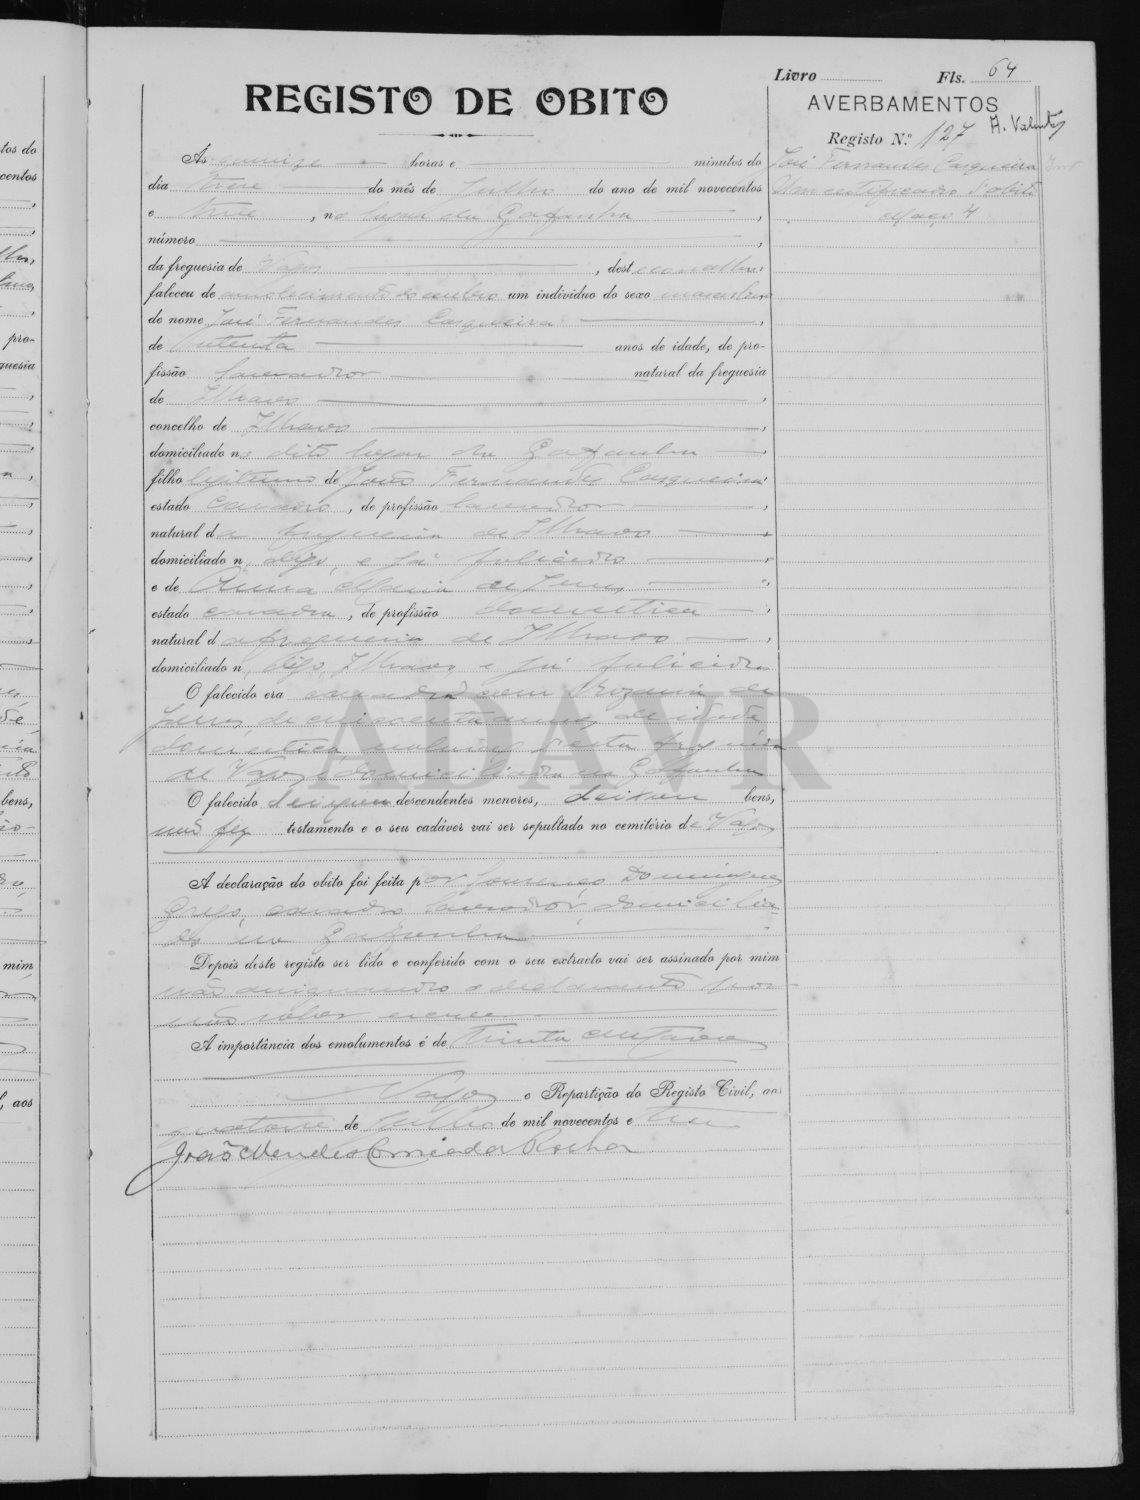 Livro Fls. 64
REGISTO DE OBITO
AVERBAMENTOS
Registo N.º 127 A. Valente
Ás quinze horas e minutos do
dia treze do mês de Julho do ano de mil novecentos
e treze, no lugar da Gafanha,
número ,
da freguesia de Vagos, deste concelho,
faleceu de amolecimento do cerebro um individuo do sexo masculino
de nome José Fernandes Casqueira,
de setenta anos de idade, de pro-
fissão lavrador natural da freguesia
de Ilhavo,
concelho de Ilhavo,
domiciliado no dito lugar da Gafanha,
filho legitimo de João Fernandes Casqueira,
estado casado, de profissão lavrador,
natural da freguesia de Ilhavo,
domiciliado n, digo, e já falecido
e de Anna Maria de Jesus,
estado casada, de profissão domestica,
natural da freguesia de Ilhavo,
domiciliado n, digo, Ilhavo, e já falecida
O falecido era casado com de
Jesus, de cincoenta annos de idade
domestica, natural d'esta freguesia
de Vagos e domiciliada na Gafanha
O falecido deixou descendentes menores, deixou bens,
não fez testamento e o seu cadáver vai ser sepultado no cemitério de Vagos
A declaração do obito foi feita por Lourenço Domingues
Grego, casado, lavrador, domicilia-
do na Gafanha
Depois deste registo ser lido e conferido com o seu extracto vai ser assinado por mim
não assignando o declarante por
não saber escrever
A importância dos emolumentos é de trinta centavos
Vagos e Repartição do Registo Civil, aos
quatorze de Julho de mil novecentos e treze
João Mendes Correia da Rocha
José Fernandes Casqueira
certificado d'obito
maço 4
ADAVR
tos do
centos
pro-
guesia
bens,
mim
, aos